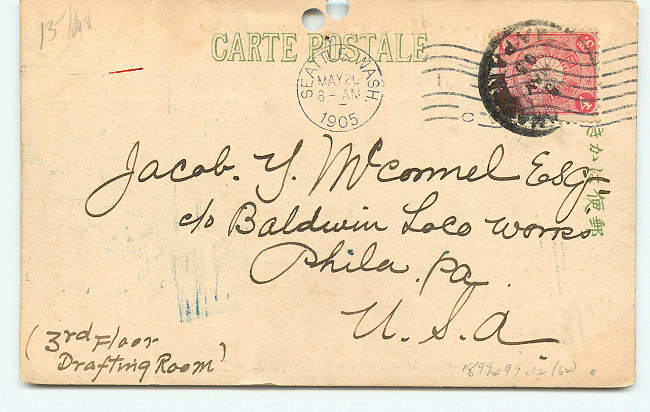 CARTE POSTALE
SEATTLE, WASH
MAY 2
8-AM
1905
JAPAN
Jacob. Y. McConnel Esq
c/o Baldwin Loco Works
Phila. Pa.
U.S.A
(3rd Floor
Drafting Room)
きがは便郵